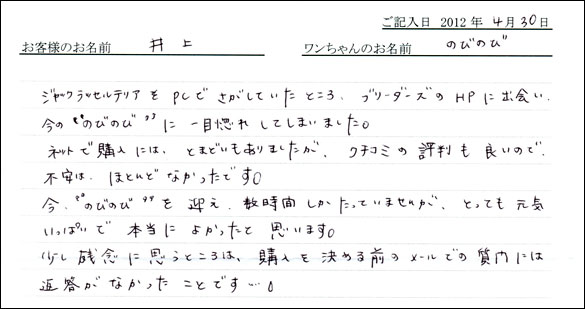 ご記入日 2012年4月30日
お客様のお名前 井上 ワンちゃんのお名前 のびのび
ジャックラッセルテリアをPCでさがしていたところ、ブリーダーズのHPに出会い、
今の"のびのび"に一目惚れしてしまいました。
ネットで購入には、とまどいもありましたが、クチコミの評判も良いので、
不安は、ほとんどなかったです。
今、"のびのび"を迎え、数時間しかたっていませんが、とっても元気
いっぱいで本当によかったと思います。
少し残念に思うところは、購入を決める前のメールでの質内には
返答がなかったことです…。